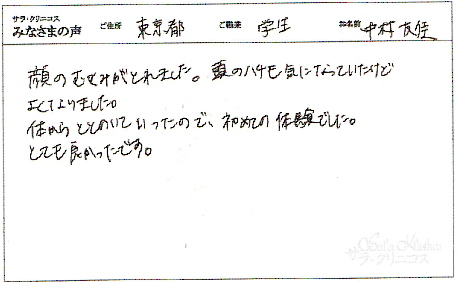 サラ・クリニコス
みなさまの声 ご住所 東京都 ご職業 学生 お名前 中村友佳
顔のむくみがとれました。頭のハチも気になっていたけど
よくなりました。
体からととのいていったので、初めての体験でした。
とても良かったです。
サラ・クリニコス